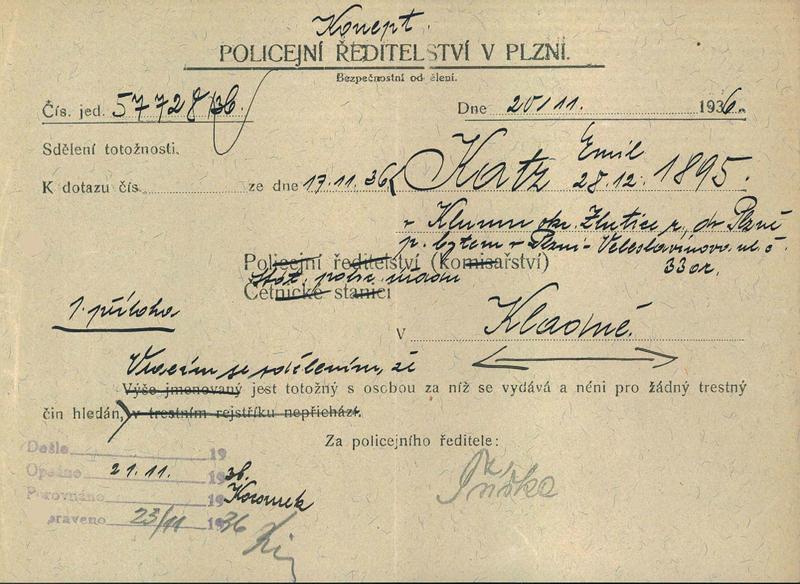 Koncept.
POLICEJNÍ ŘEDITELSTVÍ V PLZNI.
Bezpečnostní oddělení.
Čís. jed. 57728/36.
Dne 20/11. 1936.
Sdělení totožnosti.
K dotazu čís. ze dne 17.11.36
Katz Emil 28.12.1895.
v okr. Žlutice
p. bytem v Plzni Veleslavínova ul. č.
33
Policejní ředitelství (komisařství)
Stát. polic. úřadu
Četnické stanici
1 příloha
V Kladně.
Vracím se sdělením, že
Výše jmenovaný jest totožný s osobou za níž se vydává a néni pro žádný trestný
čin hledán, v trestním rejstříku nepřichází.
Za policejního ředitele:
Došlo 19
Opsáno 21.11. 1936.
Porovnáno 19
praveno 23/11 1936